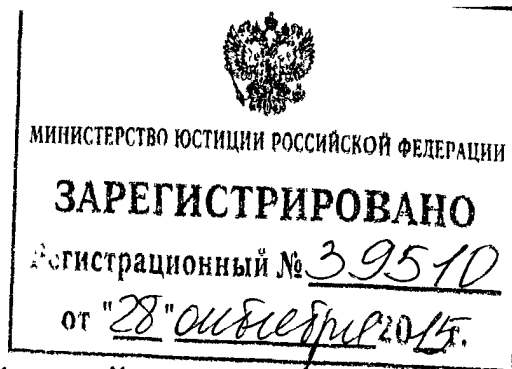 МИНИСТЕРСТВО ЮСТИЦИИ РОССИЙСКОЙ ФЕДЕРАЦИИ
ЗАРЕГИСТРИРОВАНО
Регистрационный № 39510
от "28" октября 2015г.